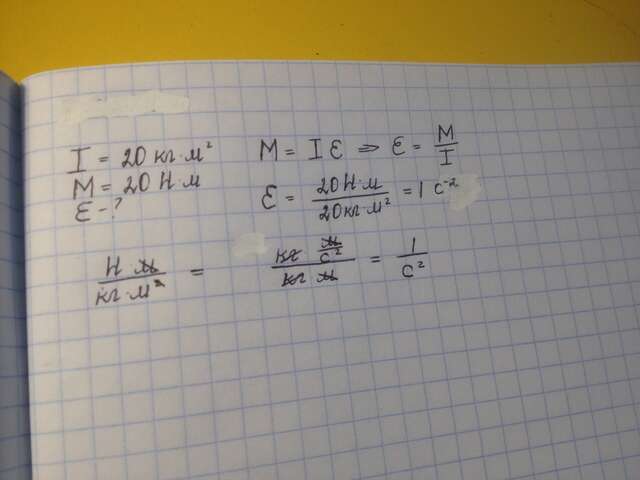 I = 20 кг·м² M = I ε ⇒ ε = M/I
M = 20 Н·м
ε - ? ε = 20 Н·м / 20 кг·м² = 1 с⁻²
Н м / кг·м² = кг м/с² / кг м = 1/с²